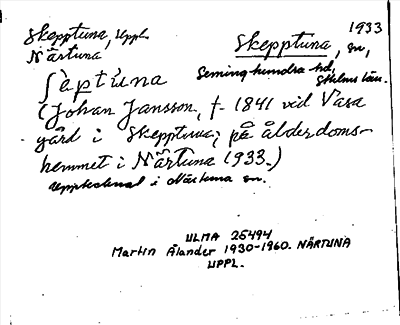 Skepptuna, Uppl.
Närtuna
1933
Skepptuna, sn,
Seminghundra hd,
Sthlms län.
(Johan Jansson, f. 1841 vid Vasa
gård i Skepptuna; på ålderdoms-
hemmet i Närtuna 1933.)
Upptecknat i Närtuna sn.
ULMA 25494
Martin Ålander 1930-1960. NÄRTUNA
UPPL.